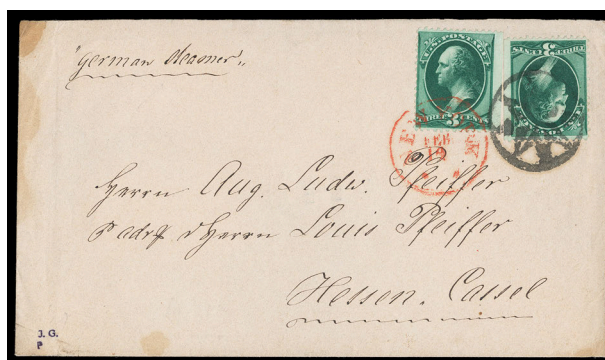 "German steamer"
U.S. POSTAGE
THREE 3 CENTS
THREE 3 CENTS
NEW YORK
FEB
19
Herrn Aug. Ludw. Pfeiffer
p adr d Herrn Louis Pfeiffer
Hessen. Cassel
J. G.
P